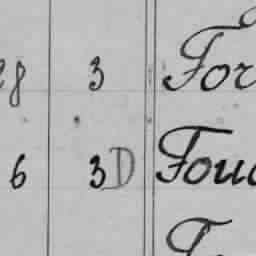 28 3 For
6 3D Fou